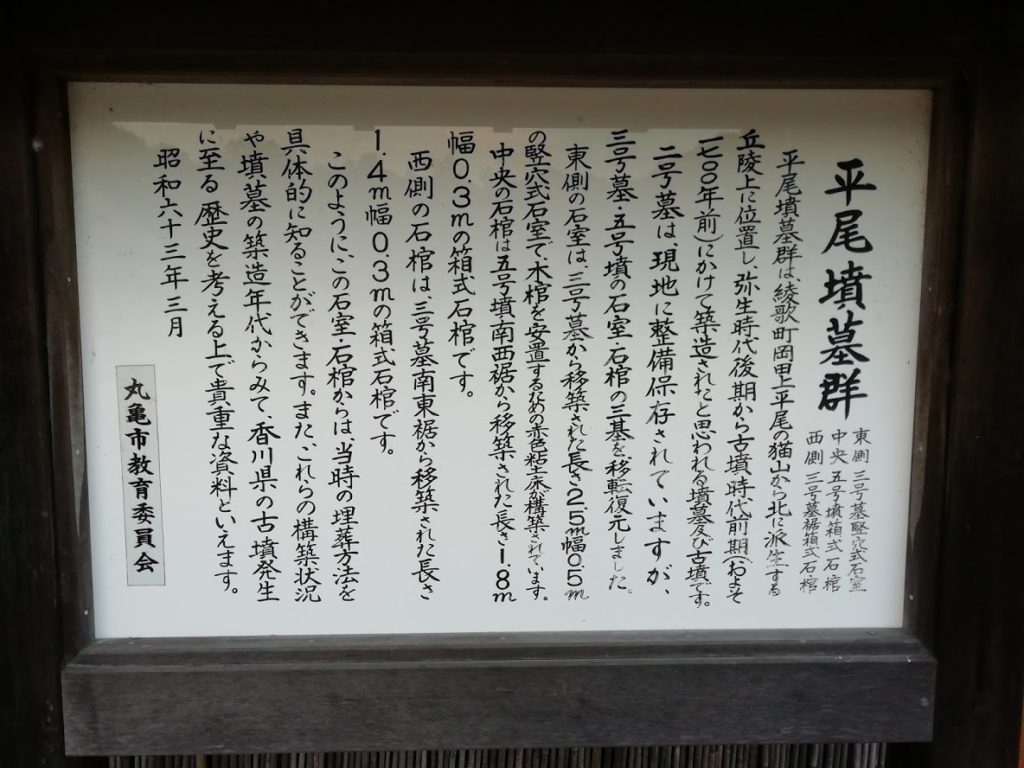 平尾墳墓群
東側 三号墓竪穴式石室
中央 五号墳箱式石棺
西側 三号墓裾箱式石棺
平尾墳墓群は、綾歌町岡田上平尾の猫山から北に派生する
丘陵上に位置し、弥生時代後期から古墳時代前期(およそ
一七〇〇年前)にかけて築造されたと思われる墳墓及び古墳です。
二号墓は、現地に整備保存されていますが、
三号墓・五号墳の石室・石棺の三基を、移転復元しました。
東側の石室は、三号墓から移築された長さ2.5m幅0.5m
の竪穴式石室で、木棺を安置するための赤色粘土床が構築されています。
中央の石棺は五号墳南西裾から移築された長さ1.8m
幅0.3mの箱式石棺です。
西側の石棺は、三号墓南東裾から移築された長さ
1.4m幅0.3mの箱式石棺です。
このように、この石室・石棺からは、当時の埋葬方法を
具体的に知ることができます。また、これらの構築状況
や墳墓の築造年代からみて、香川県の古墳発生
に至る歴史を考える上で貴重な資料といえます。
昭和六十三年三月
丸亀市教育委員会